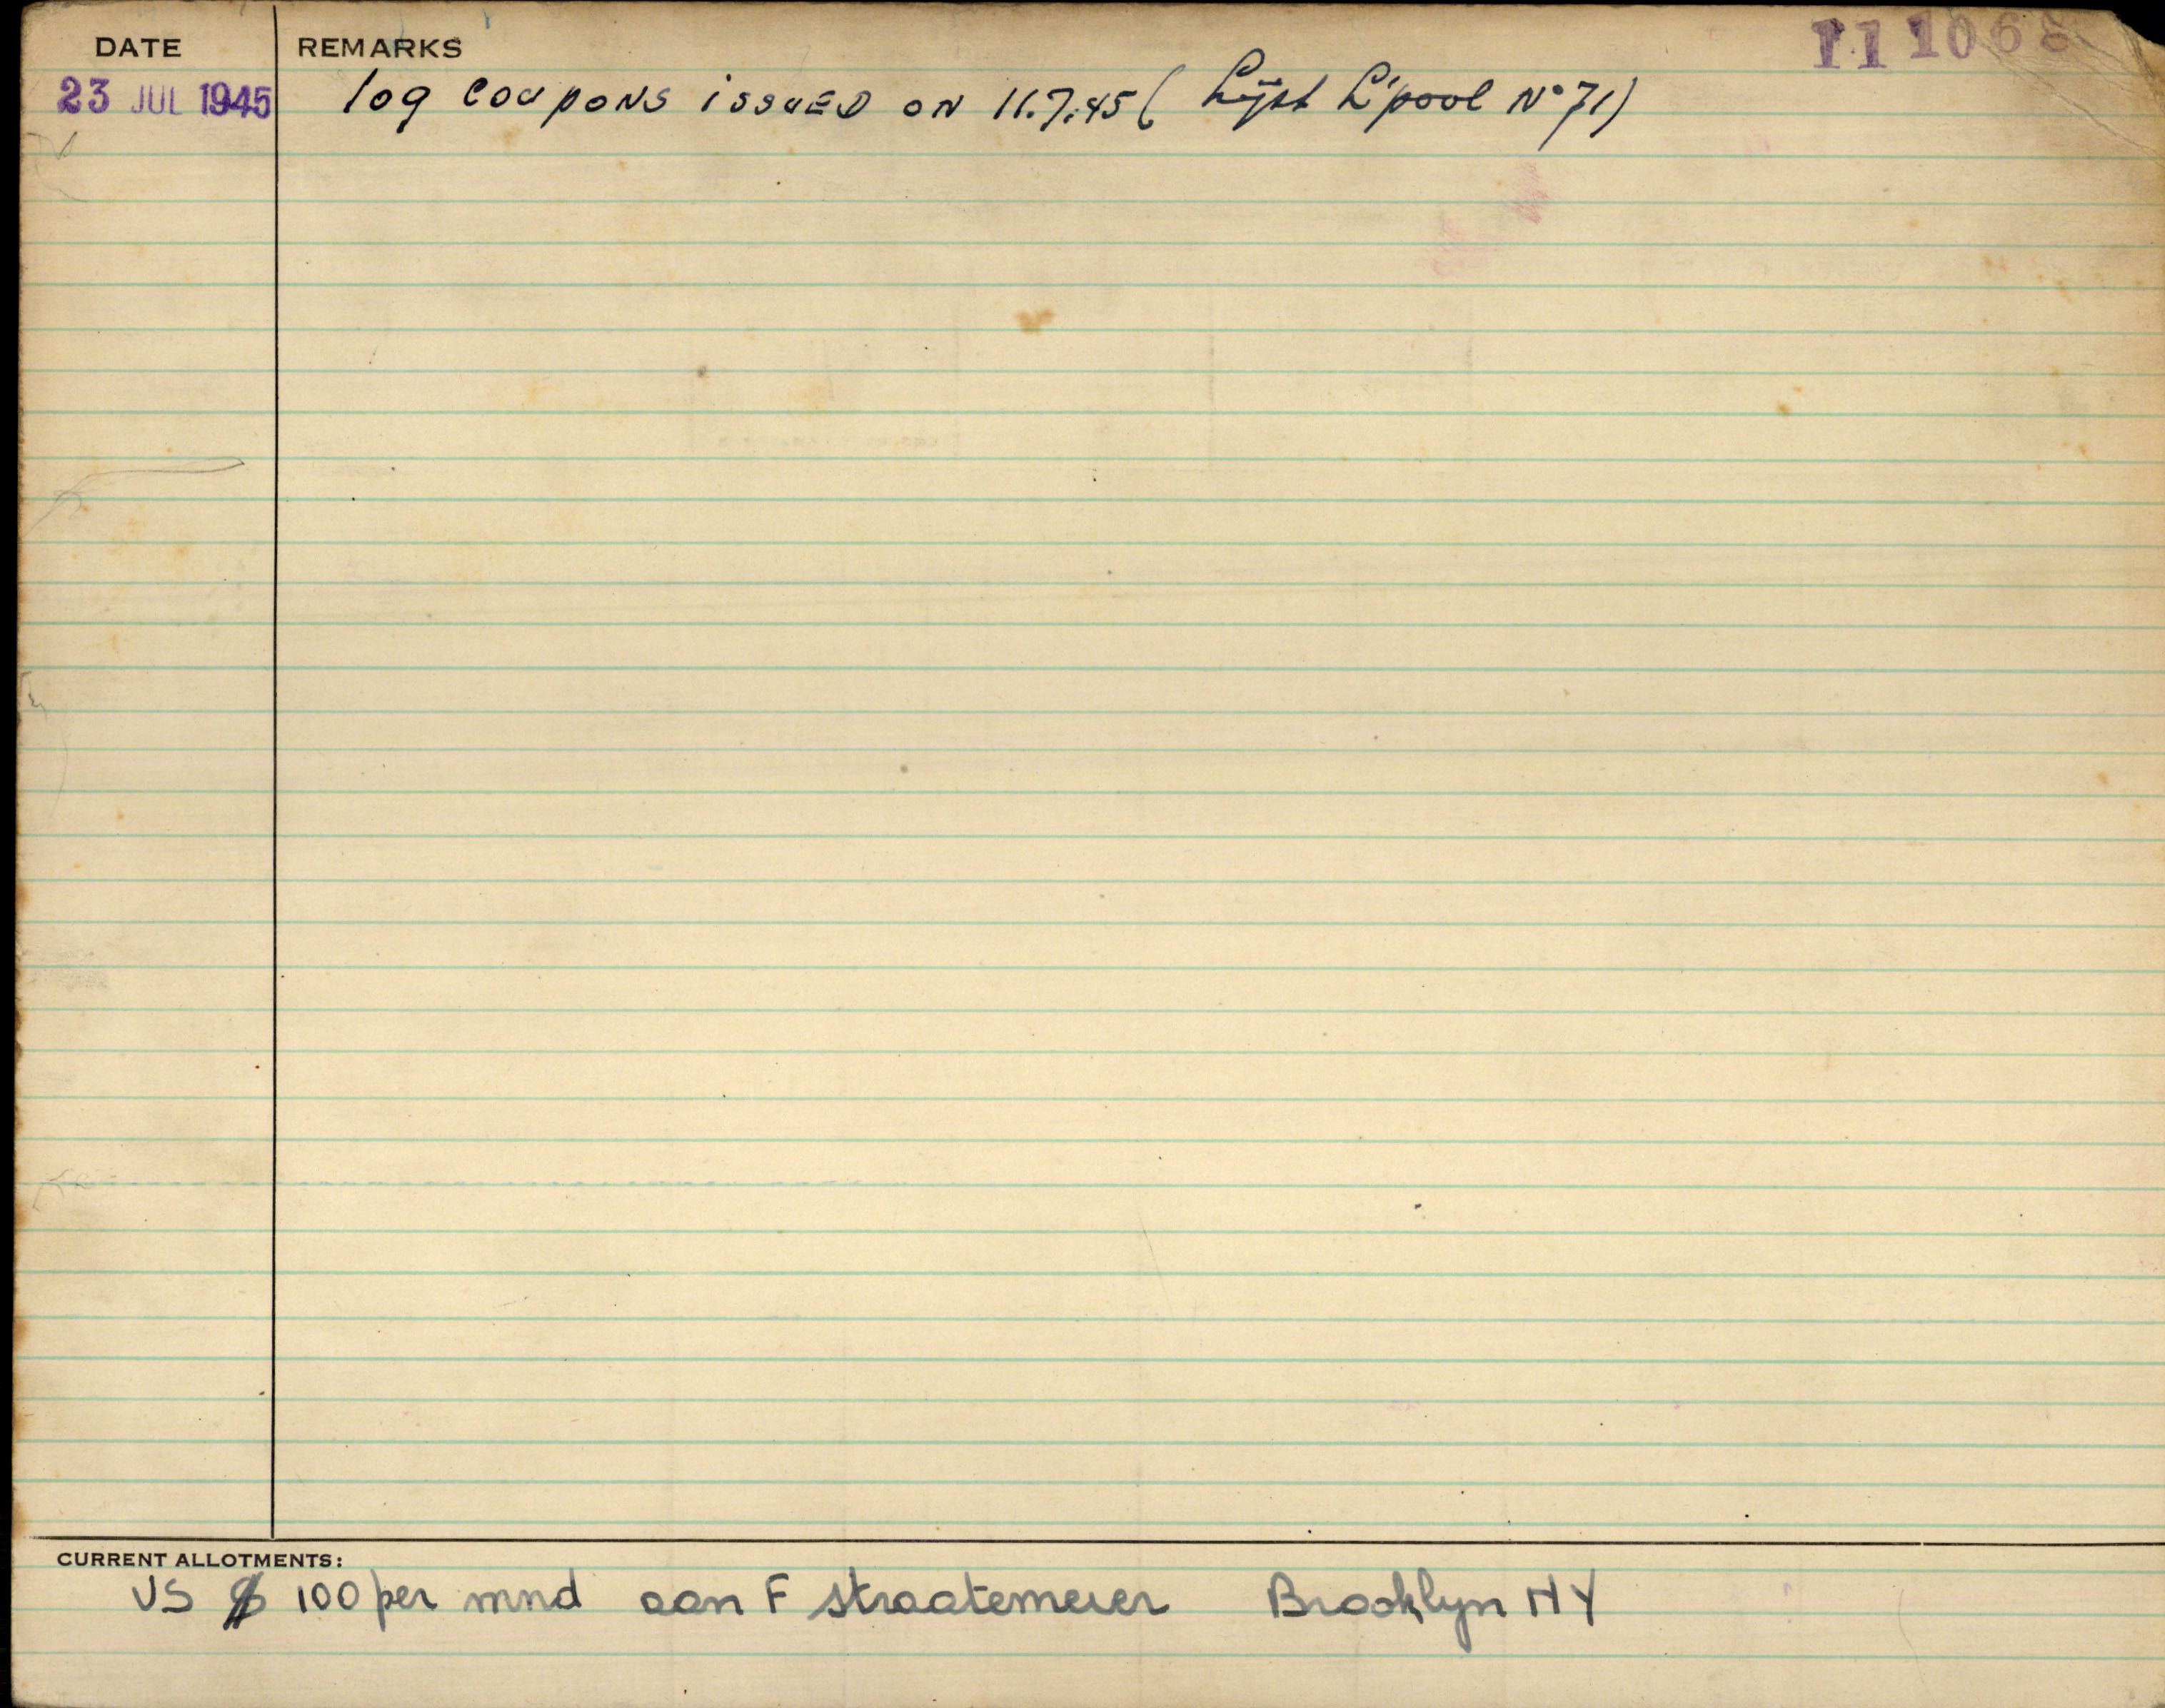 111068
DATE REMARKS
23 JUL 1945 109 coupons issued on 11.7.45 (Lijst L'pool N° 71)
CURRENT ALLOTMENTS:
US $ 100 per mnd aan F Straatemeier Brooklyn NY